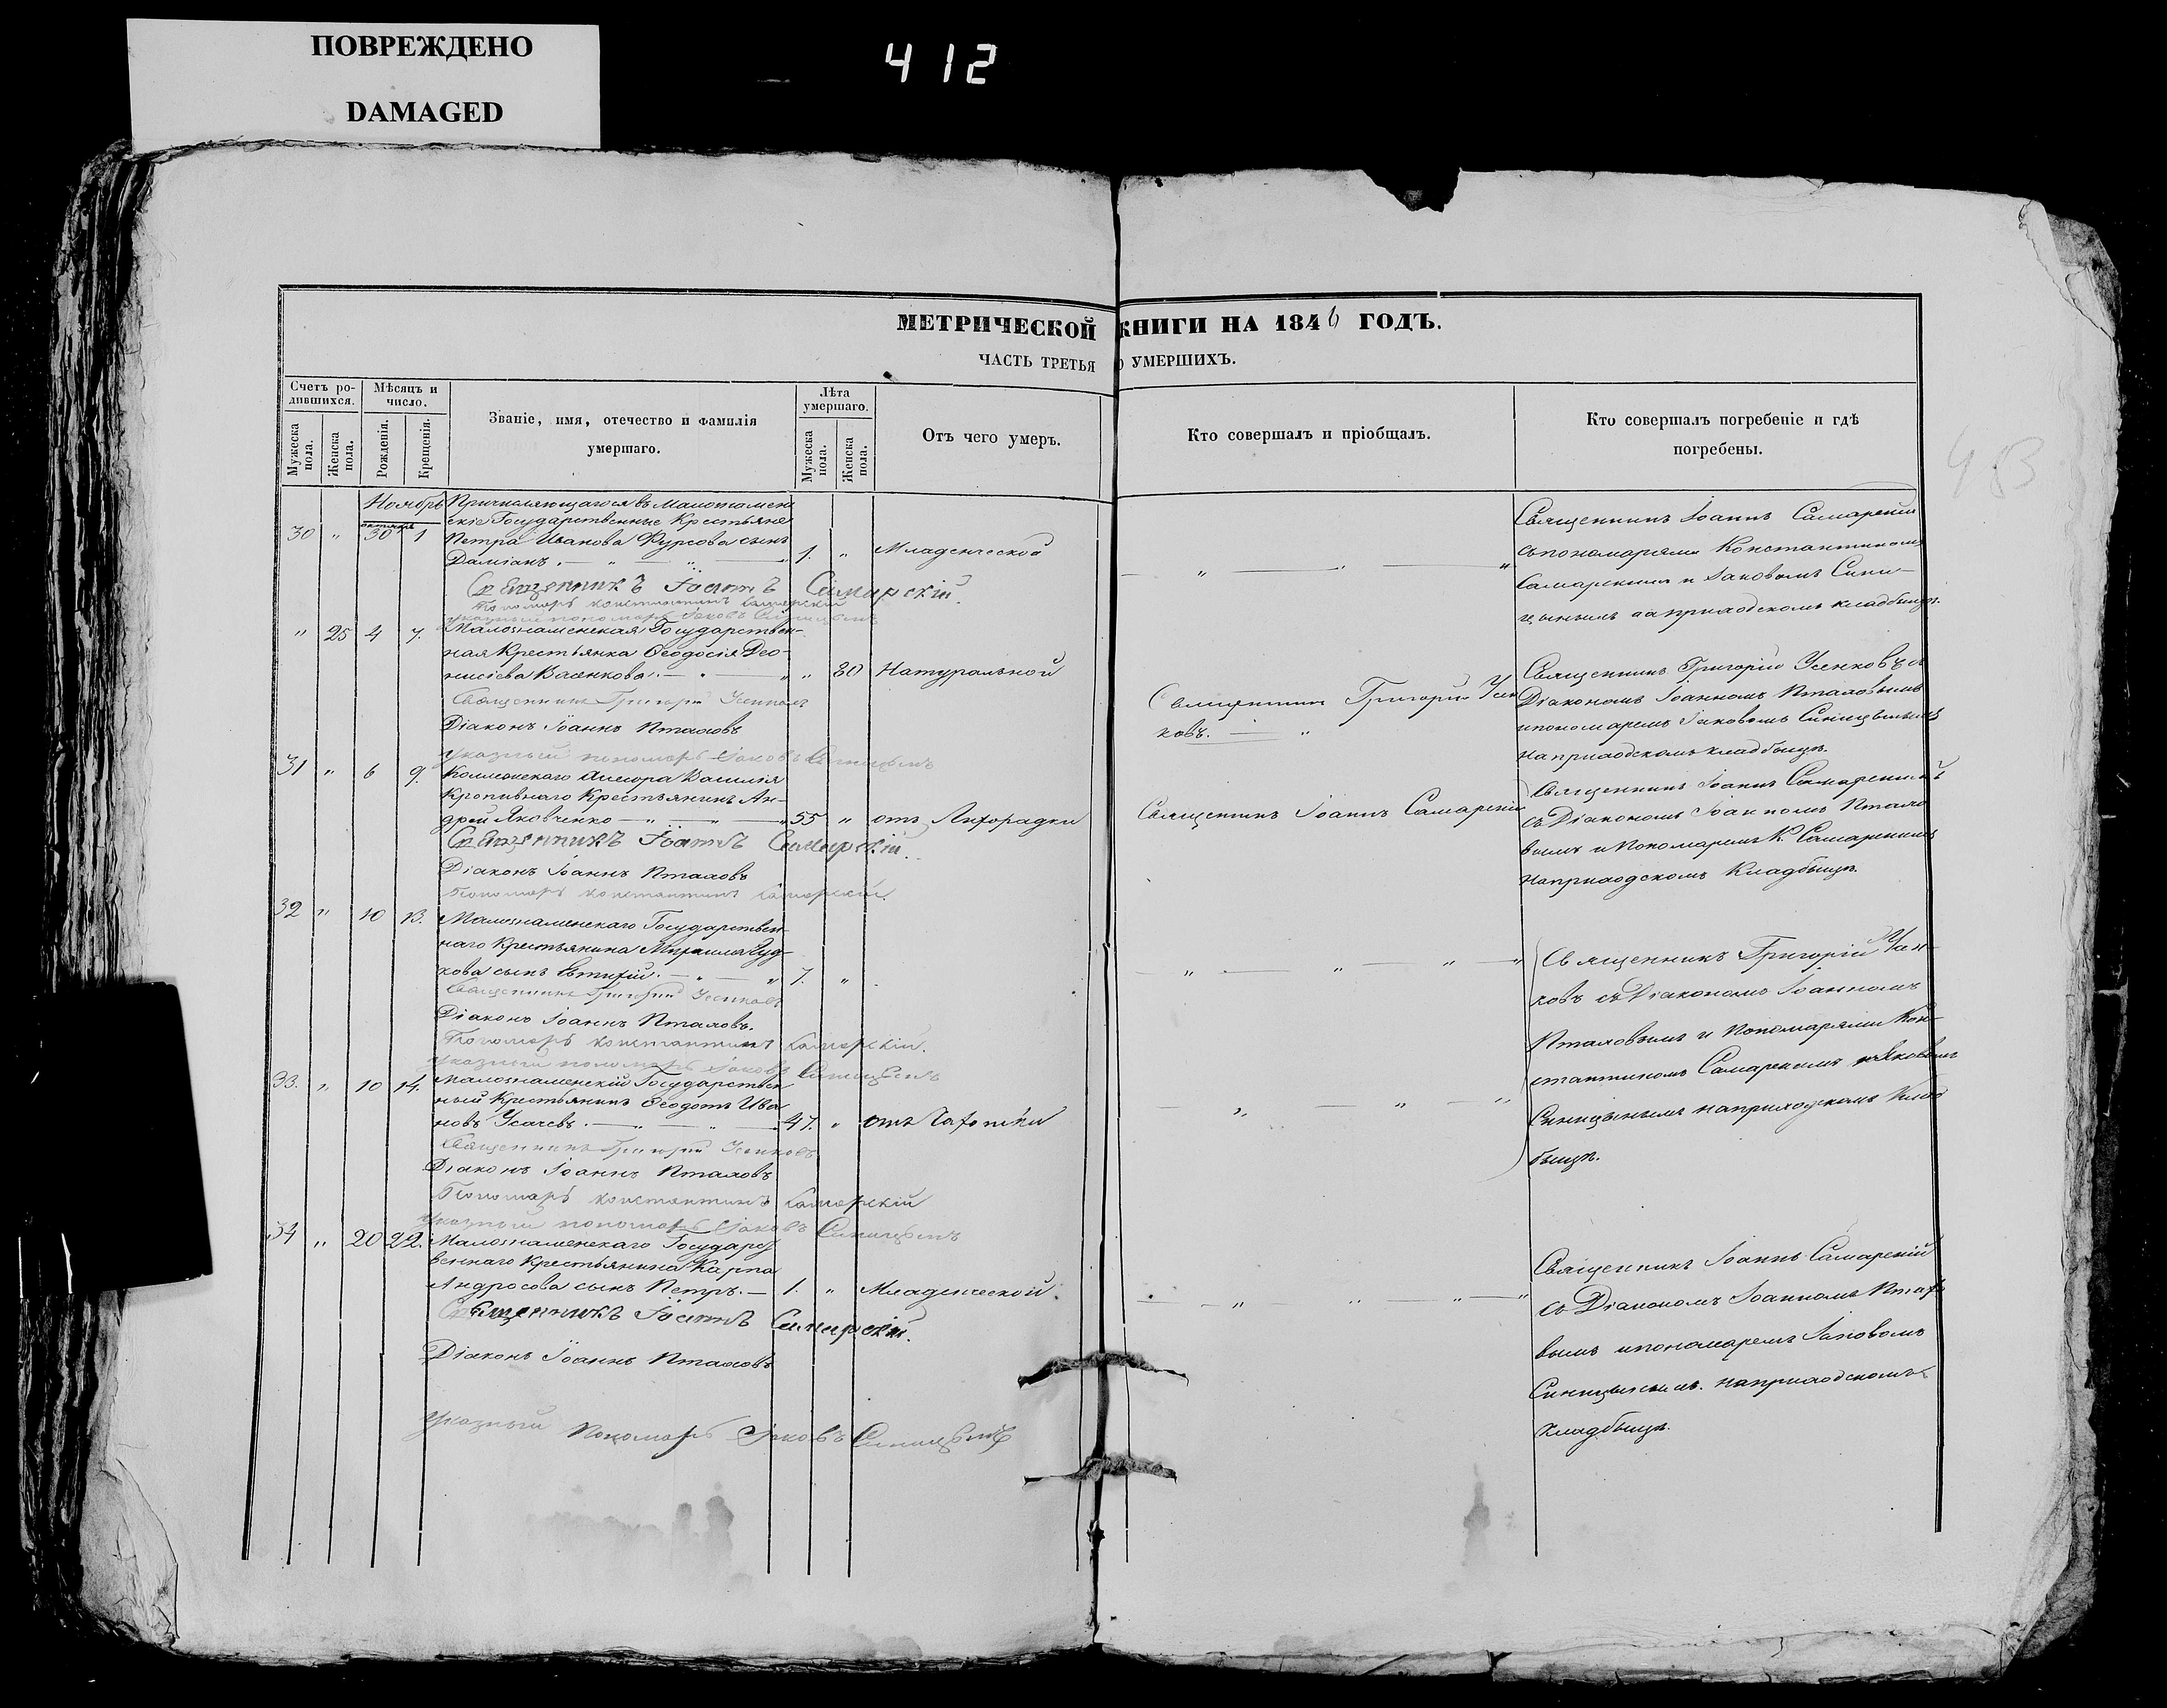 ПОВРЕЖДЕНО
DAMAGED
412
МЕТРИЧЕСКОЙ КНИГИ НА 1846 ГОДЪ.
ЧАСТЬ ТРЕТЬЯ О УМЕРШИХЪ.
Счетъ ро-
дившихся.
Мужеска пола.
Женска пола.
Мѣсяцъ и
число.
Рожденія.
Крещенія.
Званіе, имя, отечество и фамилія
умершаго.
Лѣта
умершаго.
Мужеска пола.
Женска пола.
Отъ чего умеръ.
Кто совершалъ и пріобщалъ.
Кто совершалъ погребеніе и гдѣ
погребены.
Ноябрь
октября
30 " 30 1
Причисляющагося въ Малознамен
скіе Государственные Крестьяне
Петра Иванова Фурсова сынъ
Даміанъ. — " — " — 1. " Младенческой
Священникъ Іоаннъ Самарскій.
Пономарь Константинъ Самарскій
указный пономарь Іаковъ Синицынъ
Священникъ Іоаннъ Самарскій
съ пономарями Константиномъ
Самарскимъ и Іаковомъ Сини-
цынымъ на приходскомъ кладбищѣ.
" 25 4 7.
Малознаменская Государствен-
ная Крестьянка Ѳеодосія Део-
нисіева — " — " " 80 Натуральной
Священникъ Григорій Усенковъ
Діаконъ Іоаннъ Птаховъ
Указный пономарь Іаковъ Синицынъ
Священникъ Григорій Усен
ковъ. — "
Священникъ Григорій Усенковъ съ
Діакономъ Іоанномъ Птаховымъ
и пономаремъ Іаковомъ Синицынымъ
на приходскомъ кладбищѣ.
31 " 6 9.
Ассесора Василія
Кропивнаго Крестьянинъ Ан-
дрей Яковченко — " — " — " 55 " отъ Лихорадки
Священникъ Іоаннъ Самарскій.
Діаконъ Іоаннъ Птаховъ
Пономарь Константинъ Самарскій.
Священникъ Іоаннъ Самарскій
Священникъ Іоаннъ Самарскій
съ Діакономъ Іоанномъ Птахо
вымъ и Пономаремъ К. Самарскимъ
на приходскомъ Кладбищѣ.
32 " 10 13.
Малознаменскаго Государствен-
наго Крестьянина Михаила Гуд-
кова сынъ — " — " 7. "
Священникъ Григорій Усенковъ
Діаконъ Іоаннъ Птаховъ.
Пономарь Константинъ Самарскій.
Указный пономарь Іаковъ Синицынъ
Священникъ Григорій Усен-
ковъ съ Діакономъ Іоанномъ
Птаховымъ и Пономарями Кон-
стантиномъ Самарскимъ и Яковомъ
Синицынымъ на приходскомъ Клад
бищѣ.
33. " 10 14.
Малознаменскій Государствен
ный Крестьянинъ Ѳеодотъ Ива
новъ Усачевъ. — " — " — 47. " отъ Чахотки
Священникъ Григорій Усенковъ
Діаконъ Іоаннъ Птаховъ
Пономарь Константинъ Самарскій
Указный пономарь Іаковъ Синицынъ
34 " 20 22.
Малознаменскаго Государст
веннаго Крестьянина Карпа
Андросова сынъ Петръ. — 1. " Младенческой.
Священникъ Іоаннъ Самарскій.
Діаконъ Іоаннъ Птаховъ
Указный Пономарь Іаковъ Синицынъ
Священникъ Іоаннъ Самарскій
съ Діакономъ Іоанномъ Птахо
вымъ и пономаремъ Іаковомъ
Синицынымъ. на приходскомъ
кладбищѣ.